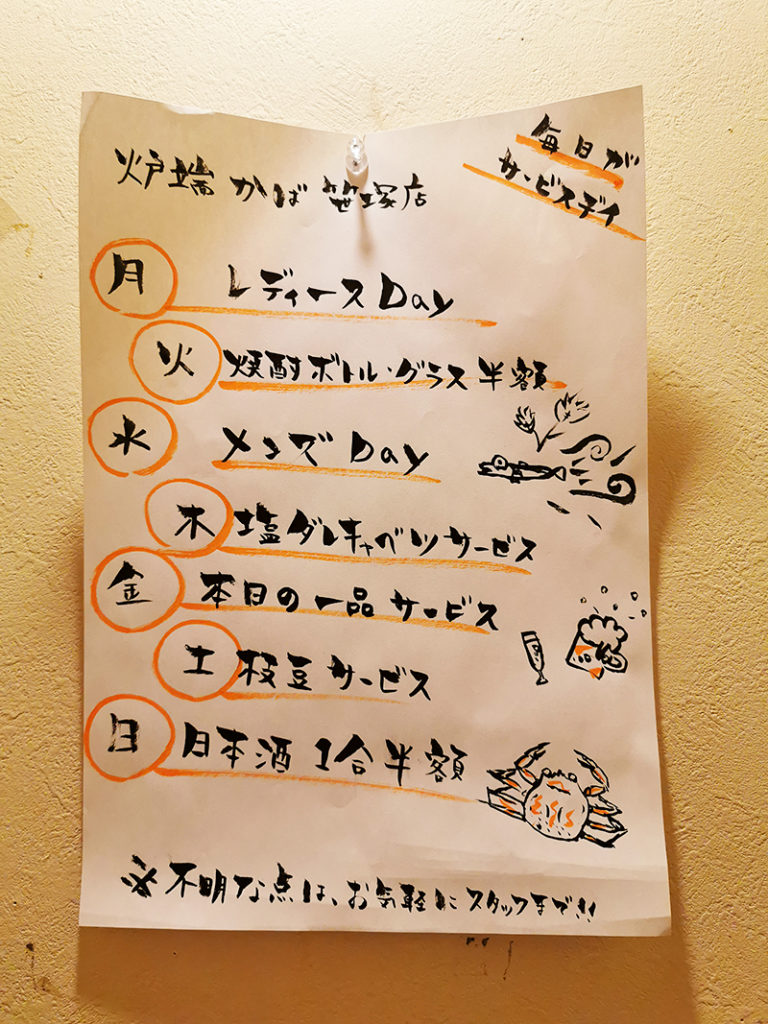 炉端 かば 笹塚店
毎日が
サービスデイ
月 レディースDay
火 焼酎ボトル・グラス半額
水 メンズDay
木 塩ダレキャベツサービス
金 本日の一品サービス
土 枝豆サービス
日 日本酒1合半額
※不明な点は、お気軽にスタッフまで!!